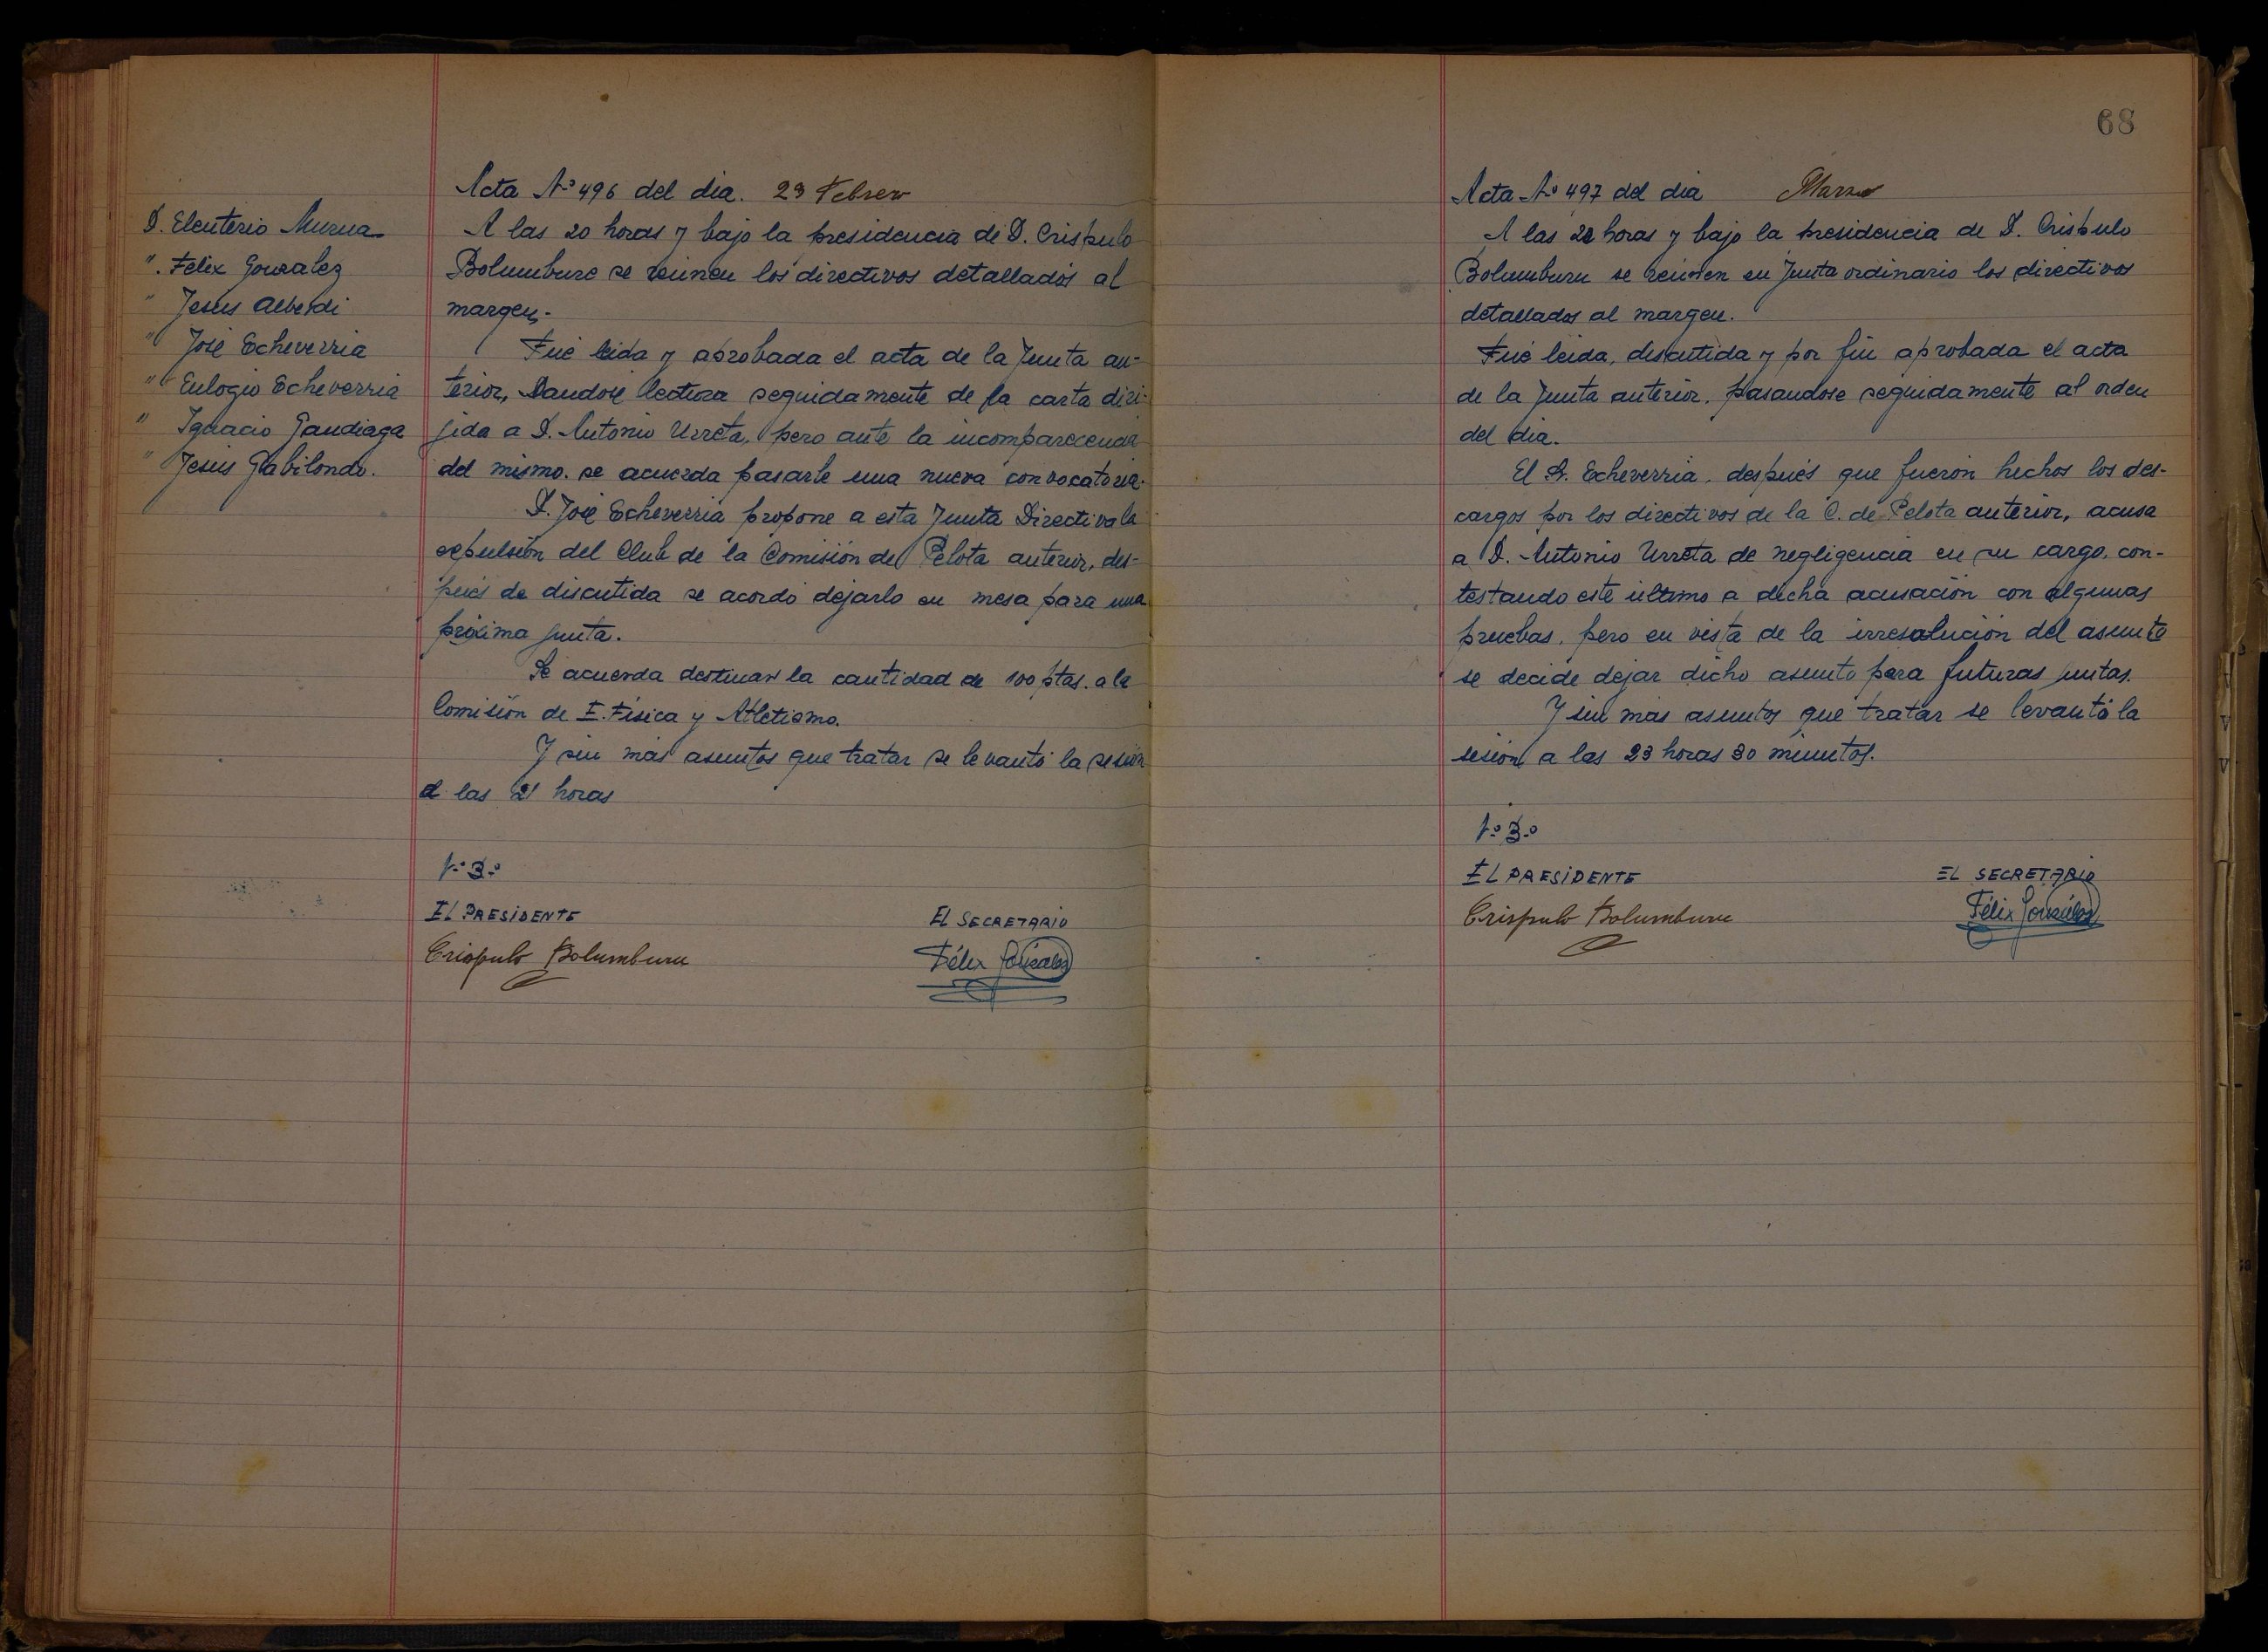 Acta Nº 496 del dia. 23 Febrero
D. Eleuterio Murua
". Felix Gonzalez
" Jesus Alberdi
" José Echeverria
" Eulogio Echeverria
" Ignacio Gandiaga
" Jesús Gabilondo.
A las 20 horas y bajo la presidencia de D. Crispulo
Bolumburu se reunen los directivos detallados al
margen.-
Fué leida y aprobada el acta de la Junta an-
terior, Dandose lectura seguidamente de la carta diri-
jida a D. Antonio Urreta, pero ante la incomparecencia
del mismo. se acuerda pasarle una nueva convocatoria.
D. José Echeverria propone a esta Junta Directiva la
expulsión del Club de la Comisión de Pelota anterior, des-
pués de discutida se acordó dejarlo en mesa para una
próxima junta.
Se acuerda destinar la cantidad de 100 ptas. a la
Comisión de E. Física y Atletismo.
Y sin más asuntos que tratar se levantó la sesión
a las 21 horas
Vº Bº
EL PRESIDENTE
EL SECRETARIO
Crispulo Bolumburu
Félix González
68
Acta Nº 497 del dia Marzo
A las 22 horas y bajo la presidencia de D. Crispulo
Bolumburu se reunen en Junta ordinario los directivos
detallados al margen.
Fué leida, discutida y por fin aprobada el acta
de la Junta anterior, pasandose seguidamente al orden
del dia.
El Sr. Echeverria, después que fueron hechos los des-
cargos por los directivos de la C. de Pelota anterior, acusa
a D. Antonio Urreta de negligencia en su cargo, con-
testando este último a dicha acusación con algunas
pruebas, pero en vista de la irresolución del asunto
se decide dejar dicho asunto para futuras juntas.
Y sin más asuntos que tratar se levantó la
sesión a las 23 horas 30 minutos.
Vº Bº
EL PRESIDENTE
EL SECRETARIO
Crispulo Bolumburu
Félix González